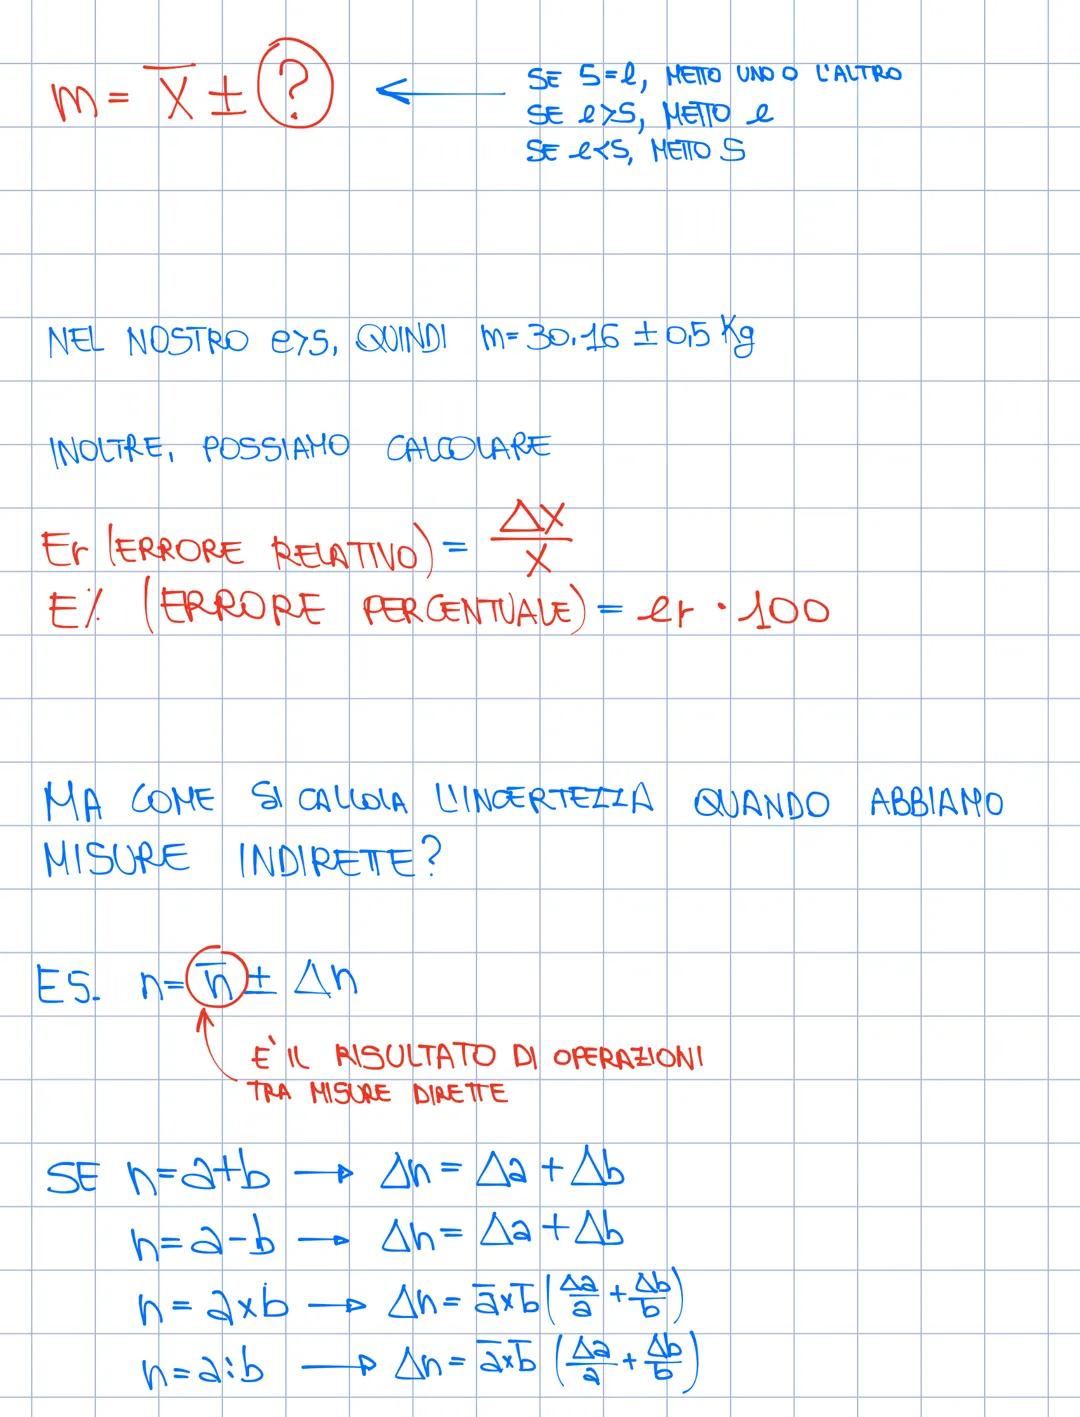 m = x̅ ± ?
SE S=e, METTO UNO O L'ALTRO
SE e>S, METTO e
SE e<S, METTO S
NEL NOSTRO e>S, QUINDI m= 30.16 ± 0,5 Kg
INOLTRE, POSSIAMO CALCOLARE
Er (ERRORE RELATIVO) = Δx/x
E% (ERRORE PERCENTUALE) = er · 100
MA COME SI CALCOLA L'INCERTEZZA QUANDO ABBIAMO
MISURE INDIRETTE?
ES. n= n̅ ± Δn
E' IL RISULTATO DI OPERAZIONI
TRA MISURE DIRETTE
SE n=a+b → Δn = Δa + Δb
n=a-b → Δn = Δa + Δb
n = axb → Δn = a̅xb̅ (Δa/a + Δb/b)
n=a:b → Δn = a̅xb̅ (Δa/a + Δb/b)